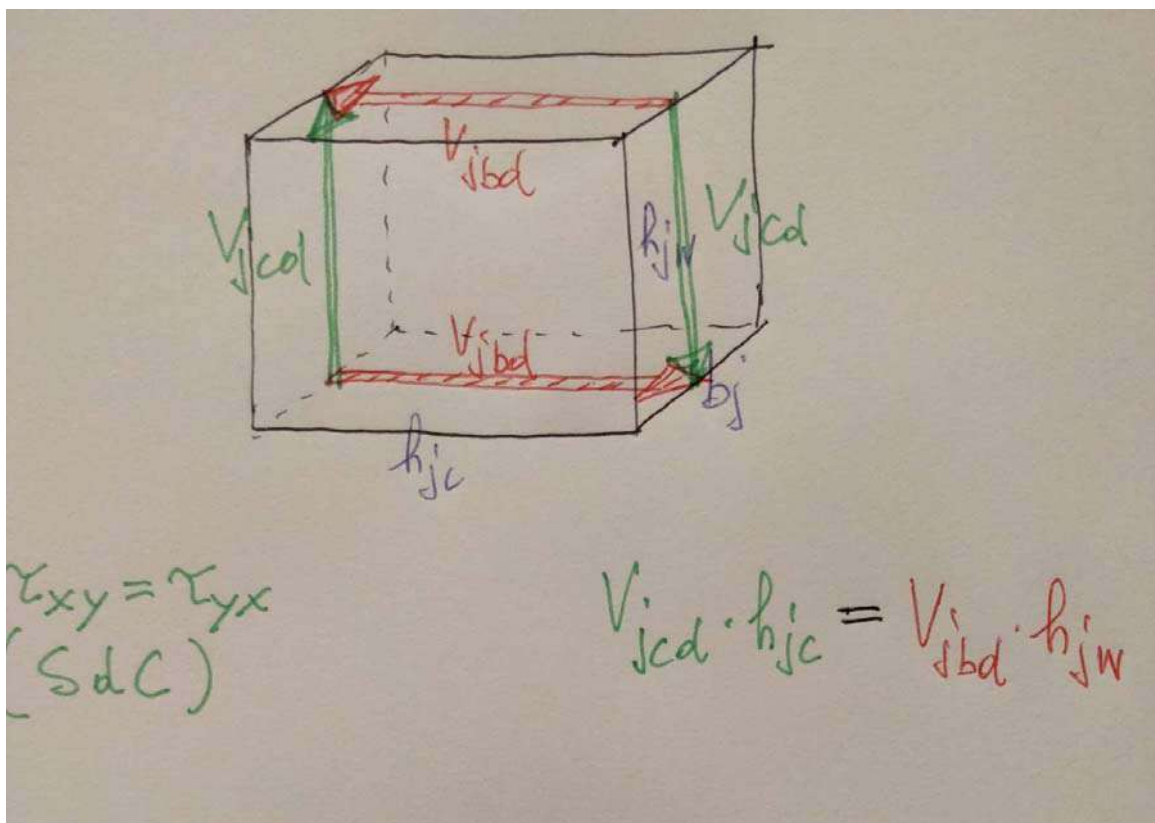 V_jbd
V_jcd
h_jw
V_jcd
V_jbd
b_j
h_jc
τ_xy = τ_yx
(SdC)
V_jcd · h_jc = V_jbd · h_jw